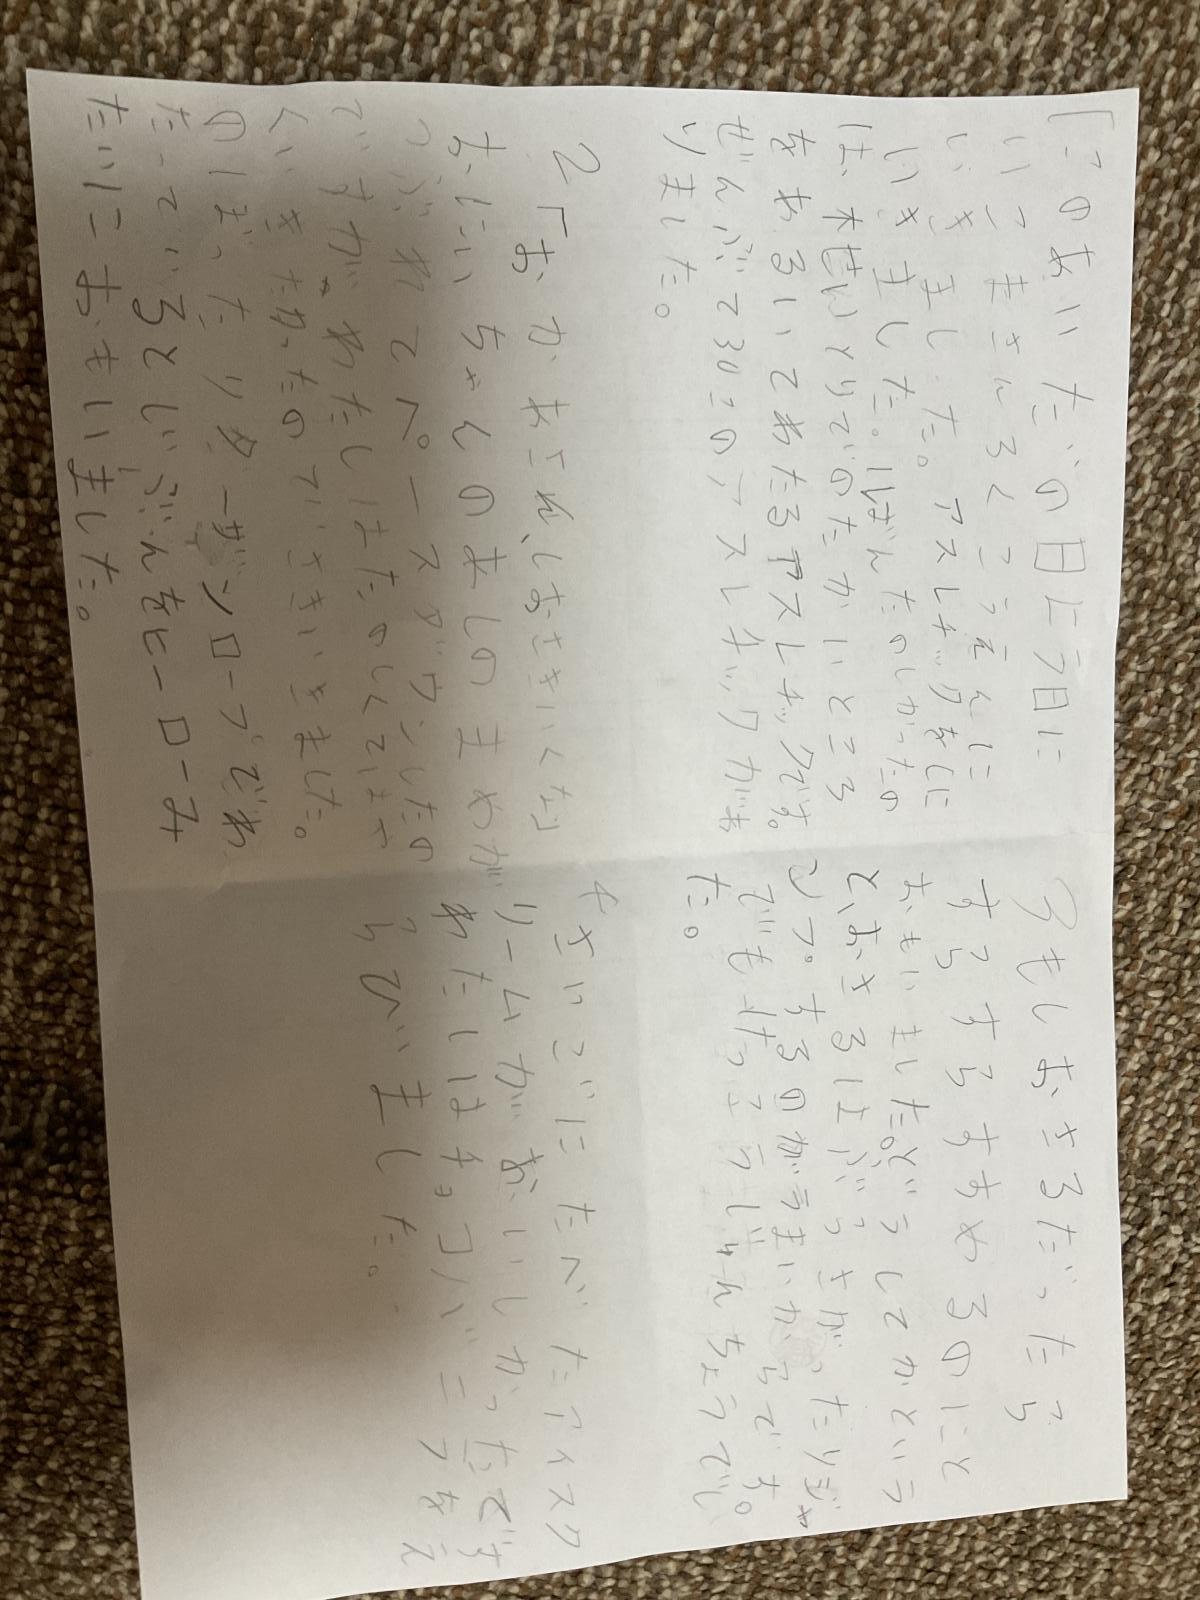 「このあいだの日よう日に
いこまさんろくこうえんに
いきました。アスレチックをしに
いきました。1ばんたのしかったの
は、木せいとりでのたかいところ
をあるいてわたるアスレチックです。
ぜんぶで30このアスレチックがあ
りました。
2「おかあさん、しおさきいくね」
おにいちゃんのあしのまめが
つぶれてペースダウンしたの
ですが、わたしはたのしくてはや
くいきたかったのでさきいきました。
のぼったりターザンロープでわ
たっているとじぶんをヒーローみ
たいにおもいました。
3もしおさるだったら
すらすらすすめるのにと
おもいました。どうしてかという
と、おさるはぶらさがったりジャ
ンプするのがうまいからです。
でもけっこうじゅんちょうでし
た。
4さいごにたべたアイスク
リームがおいしかったです
わたしはチョコバニラをえ
らびました。